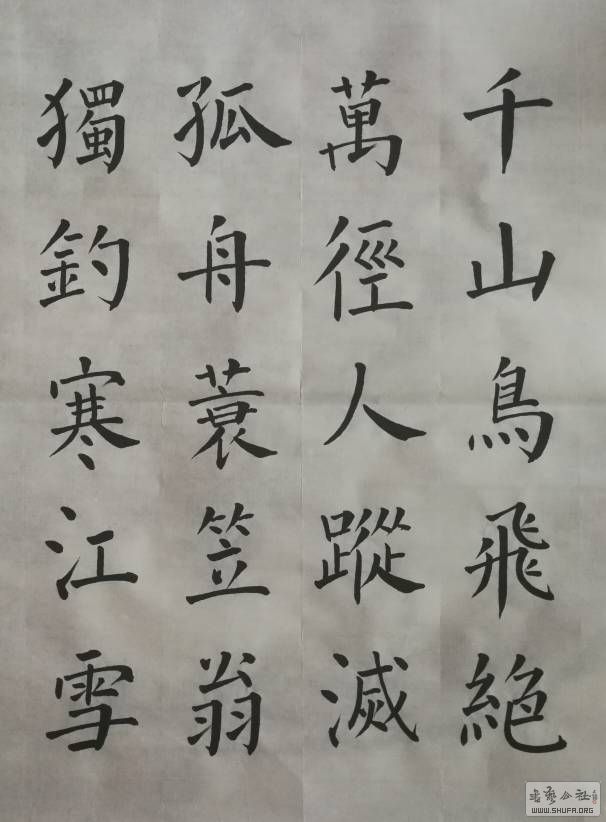 千山鳥飛絶
萬徑人蹤滅
孤舟蓑笠翁
獨釣寒江雪
WWW.SHUFA.ORG